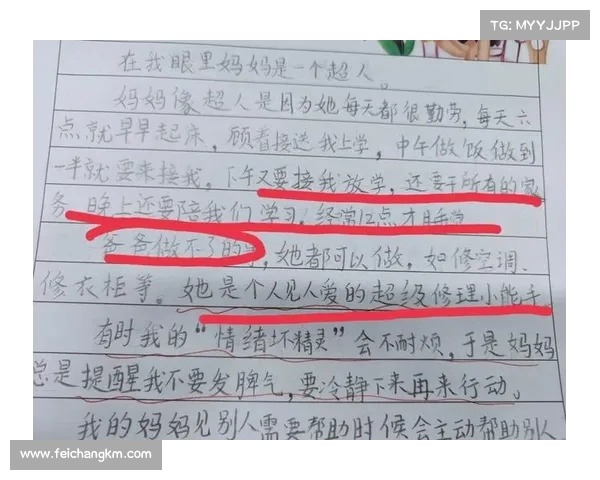 TG: MYYJJPP
在我眼里妈妈是一个超人。
妈妈像超人是因为她每天都很勤劳,每天六
点就早早起床,顾着接送我上学,中午做饭做到
一半就要来接我,下午又要接我放学,还要干所有的家
务,晚上还要陪我们学习,经常12点才
爸爸做不了的,她都可以做,如修空调、
修衣柜等。她是个人见人爱的超级修理小能手。
有时我的“情绪坏精灵”会不耐烦,于是妈妈
总是提醒我不要发脾气,要冷静下来再来行动。
我的妈妈见别人需要帮助时候会主动帮助别人
www.feichangkm.com